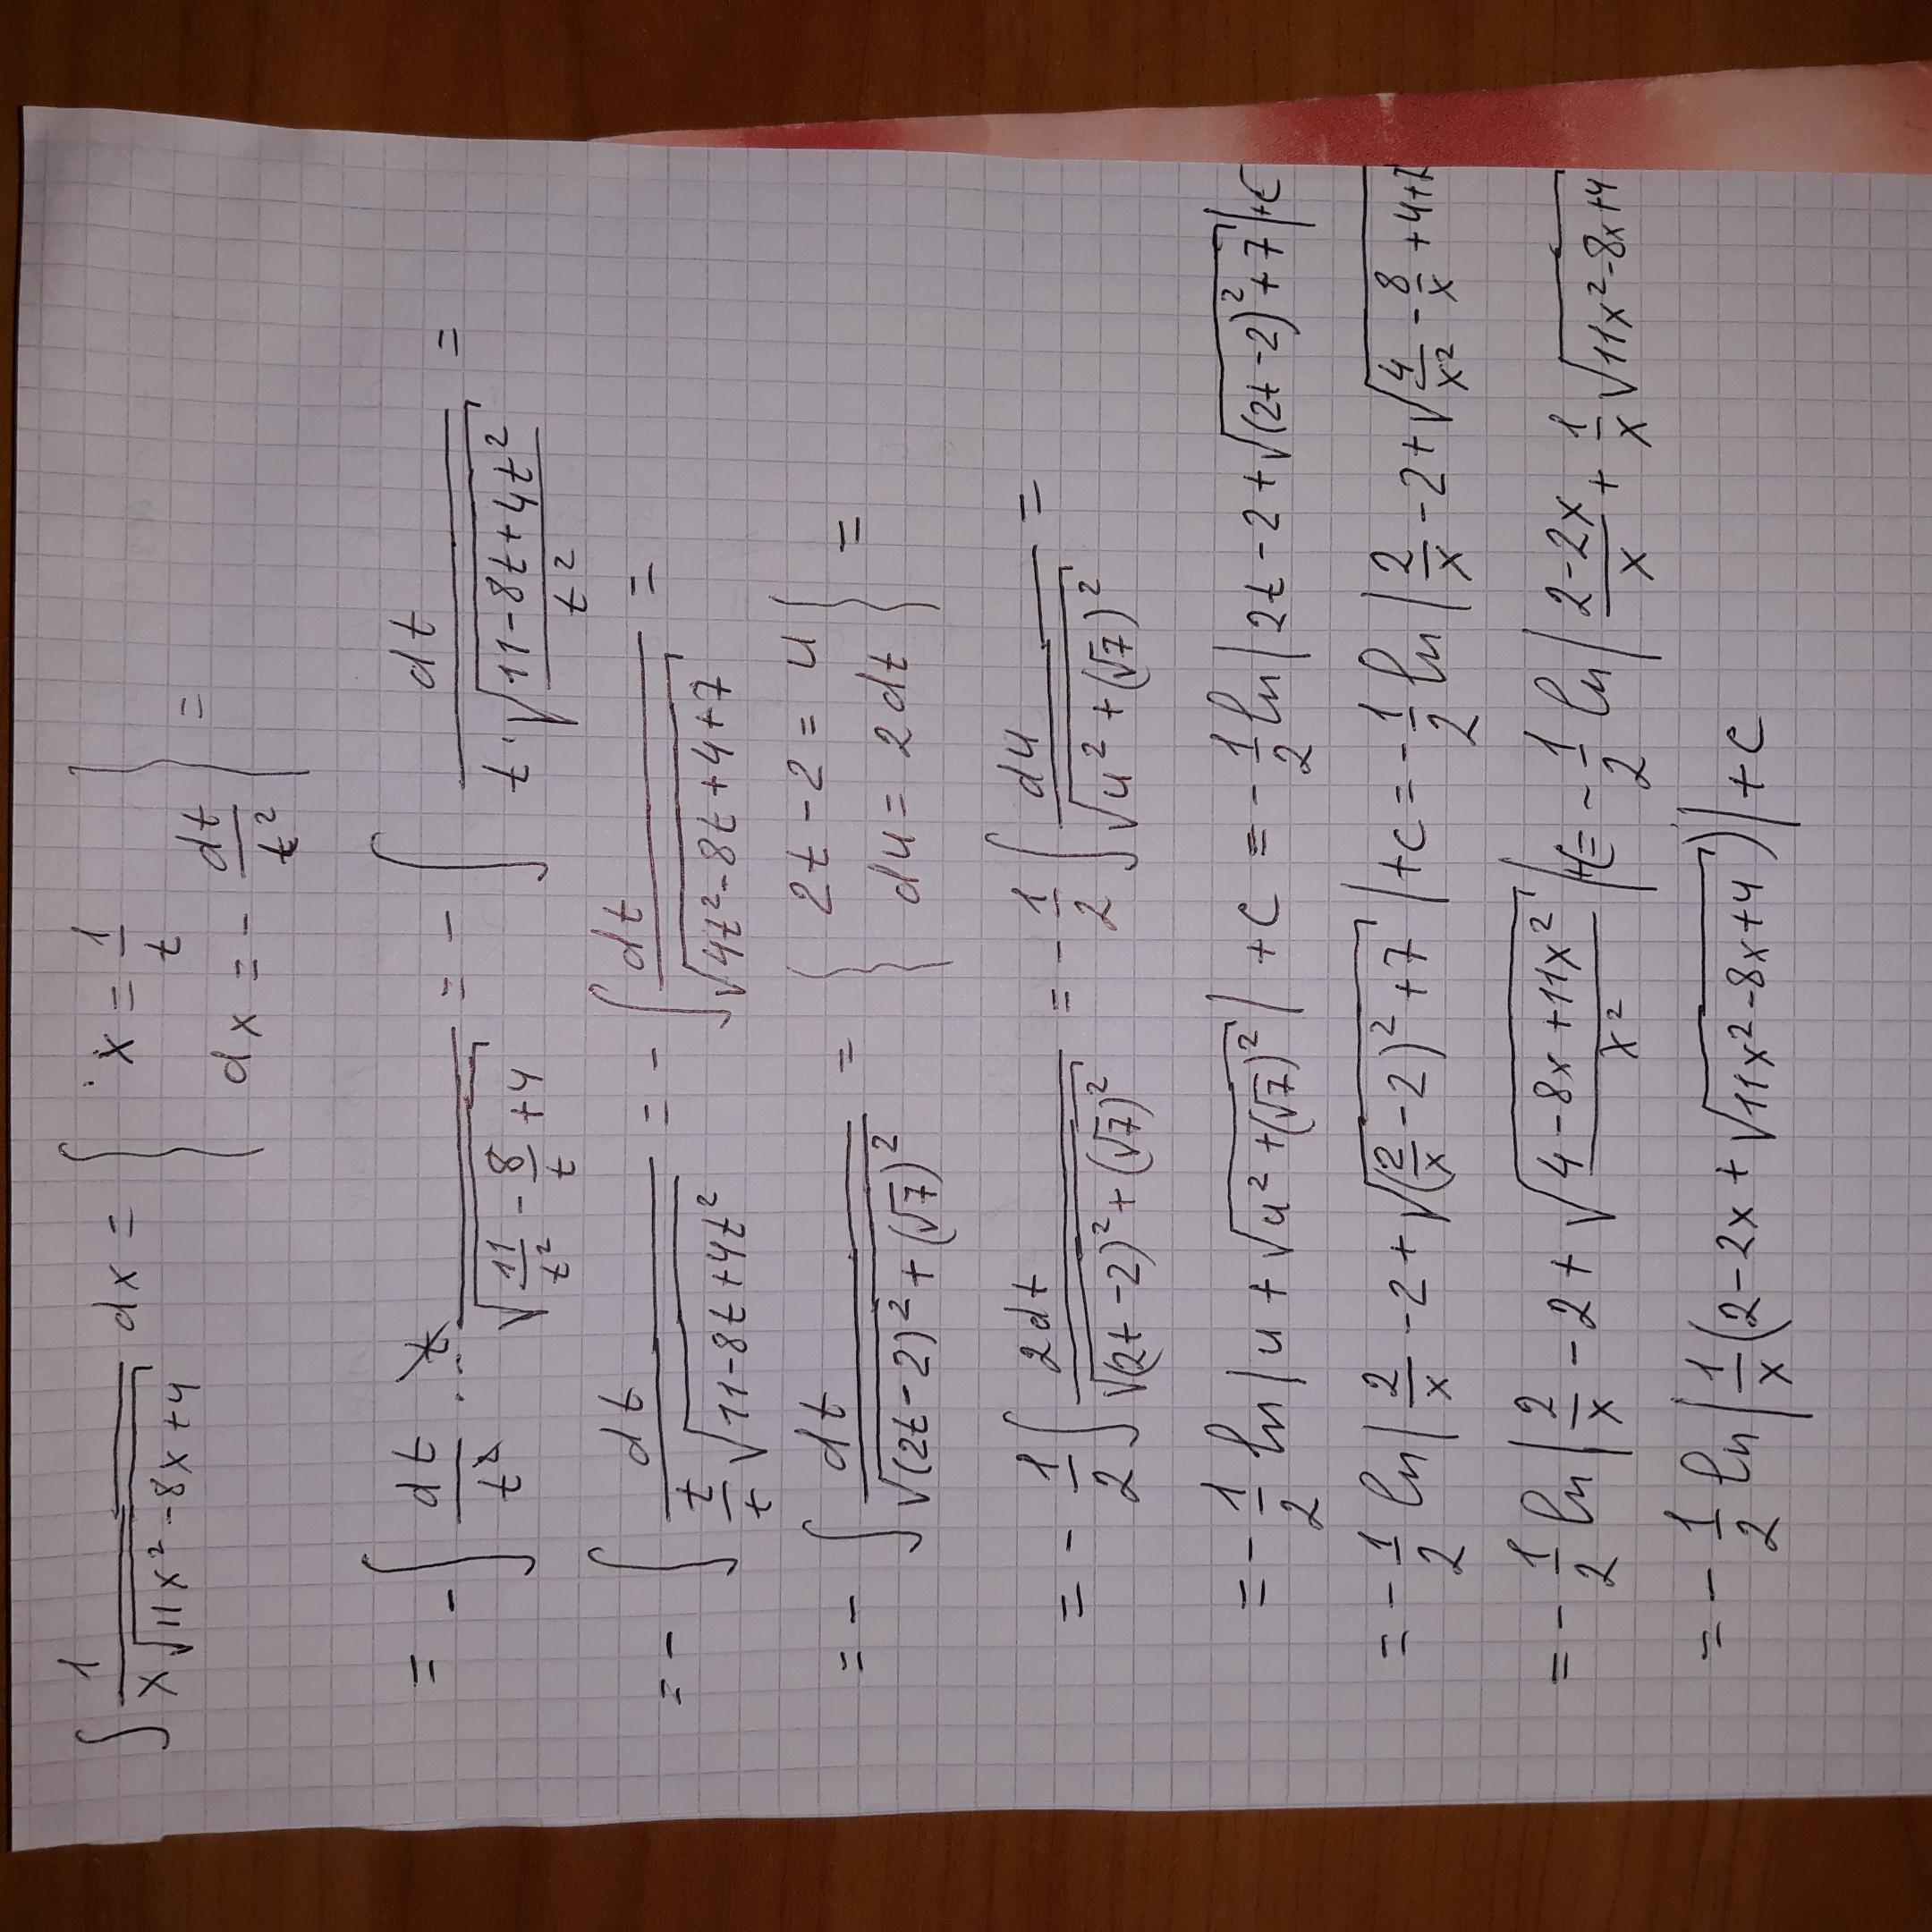 ∫ 1/(x√(11x²-8x+4)) dx = { x = 1/t
dx = - dt/t² } =
= - ∫ dt/t² · t/√(11/t² - 8/t + 4) = - ∫ dt/(t·√((11-8t+4t²)/t²)) =
= - ∫ dt/(t/t √(11-8t+4t²)) = - ∫ dt/√(4t²-8t+4+7) =
= - ∫ dt/√((2t-2)²+(√7)²) = { 2t-2=u
du=2dt } =
= - 1/2 ∫ 2dt/√((2t-2)²+(√7)²) = - 1/2 ∫ du/√(u²+(√7)²) =
= - 1/2 ln|u+√(u²+(√7)²)| +C = - 1/2 ln|2t-2+√((2t-2)²+7)|+C
= - 1/2 ln|2/x -2+√((2/x -2)²+7)|+C = - 1/2 ln|2/x -2+√(4/x² - 8/x +4+7
= - 1/2 ln|2/x -2+√((4-8x+11x²)/x²)|+C = - 1/2 ln|(2-2x)/x + 1/x √(11x²-8x+4)
= - 1/2 ln|1/x (2-2x+√(11x²-8x+4))|+C